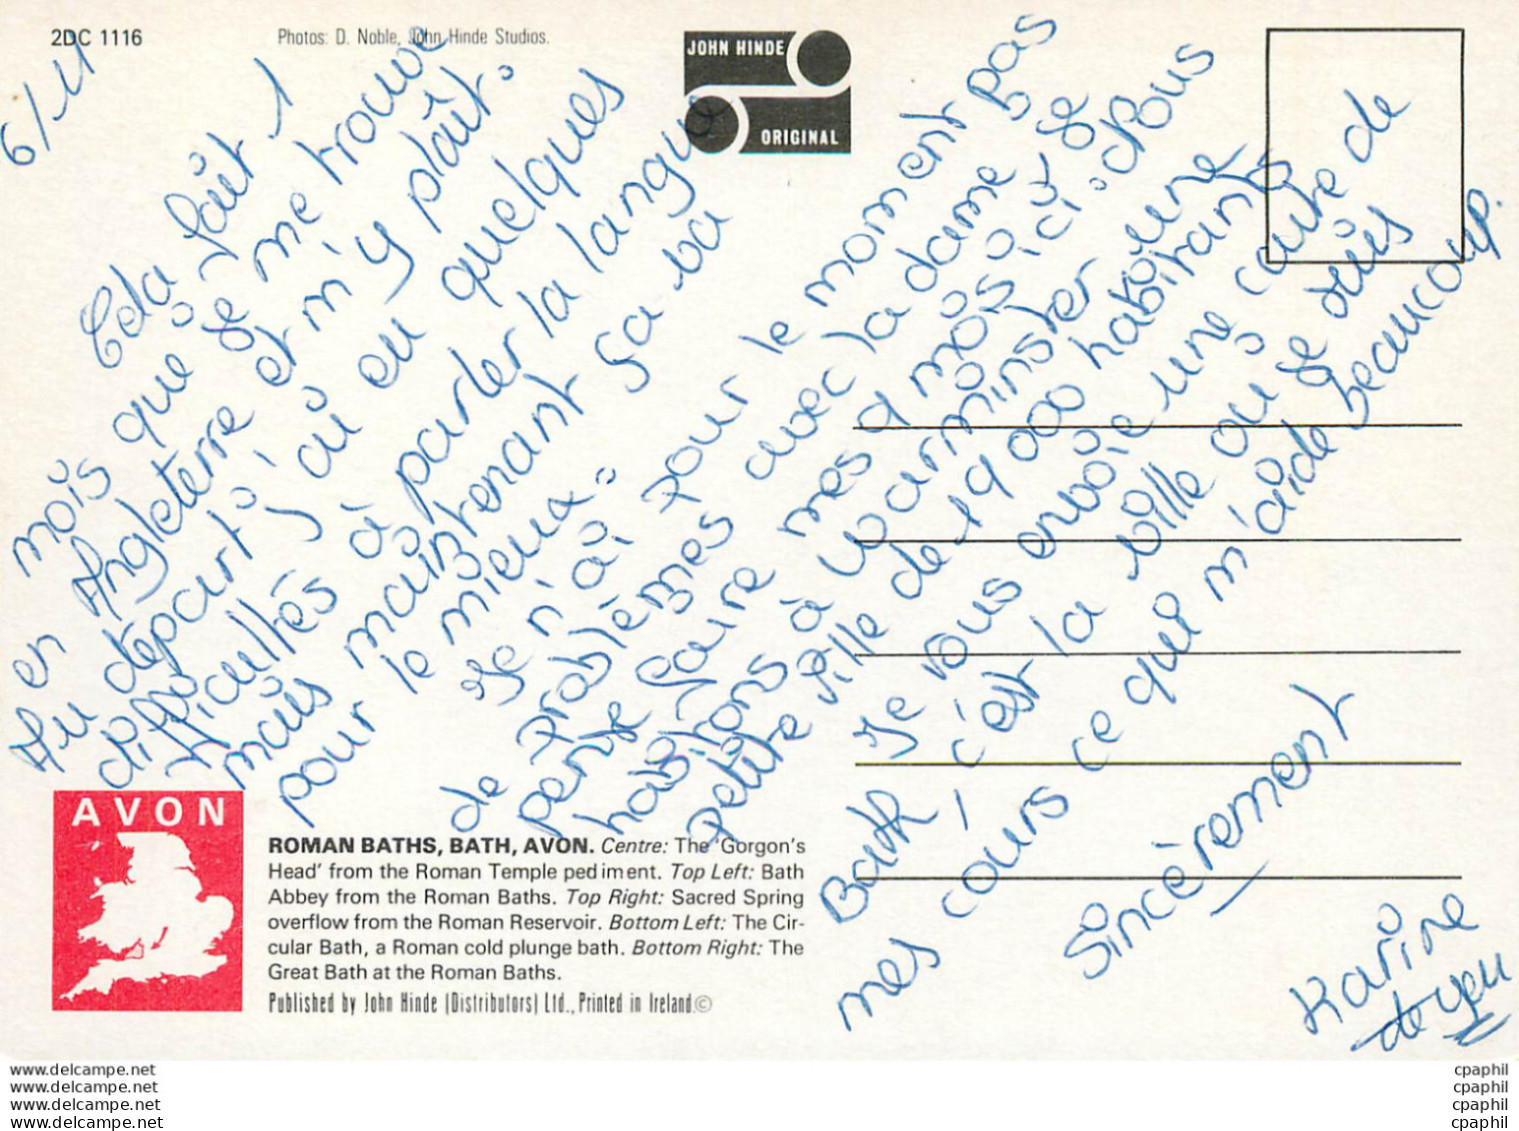 2DC 1116
Photos: D. Noble, John Hinde Studios.
JOHN HINDE
ORIGINAL
6/11
Cela fait 1
mois que je me trouve
en Angleterre et m'y plaît.
Au départ j'ai eu quelques
difficultés à parler la langue
mais maintenant ça va
pour le mieux.
Je n'ai pour le moment pas
de problèmes avec la dame je
pense faire mes 9 mois ici. Nous
habitons à Warminster une
petite ville de 19 000 habitants
Je vous envoie une carte de
Bath, c'est la ville où je suis
mes cours ce qui m'aide beaucoup.
Sincèrement
Karine
AVON
ROMAN BATHS, BATH, AVON. Centre: The 'Gorgon's
Head' from the Roman Temple pediment. Top Left: Bath
Abbey from the Roman Baths. Top Right: Sacred Spring
overflow from the Roman Reservoir. Bottom Left: The Cir-
cular Bath, a Roman cold plunge bath. Bottom Right: The
Great Bath at the Roman Baths.
Published by John Hinde (Distributors) Ltd., Printed in Ireland.©
www.delcampe.net
www.delcampe.net
www.delcampe.net
www.delcampe.net
cpaphil
cpaphil
cpaphil
cpaphil